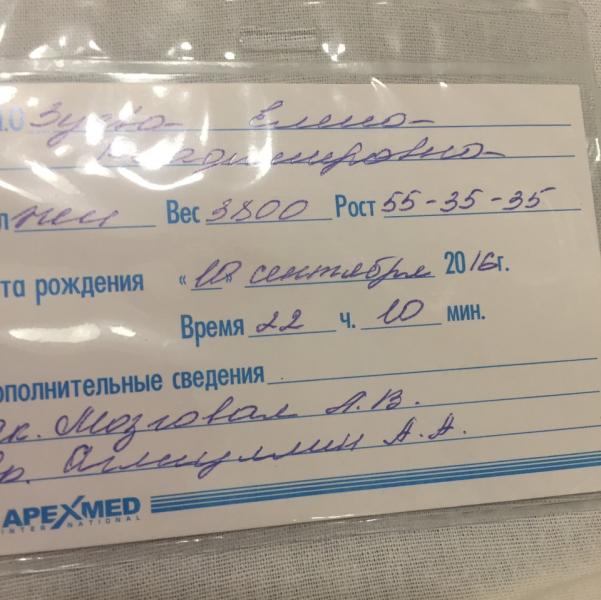 .О Елена
Владимировна
л жен Вес 3800 Рост 55-35-35
та рождения «10» сентября 2016г.
Время 22 ч. 10 мин.
ополнительные сведения
Мозговая Л.В.
А.А.
APEXMED
INTERNATIONAL